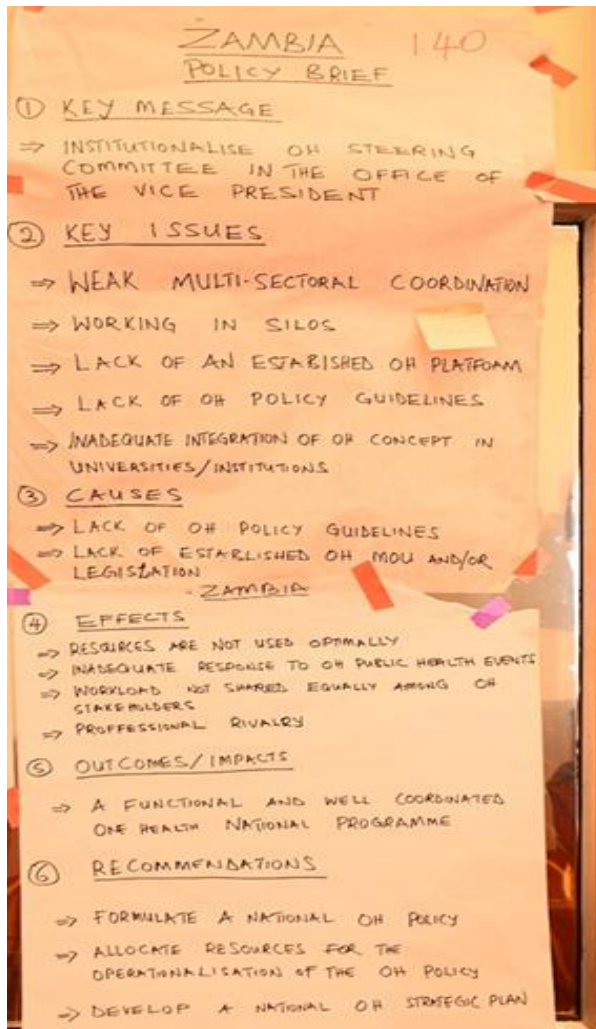 ZAMBIA 140
POLICY BRIEF
① KEY MESSAGE
⇒ INSTITUTIONALISE OH STEERING
COMMITTEE IN THE OFFICE OF
THE VICE PRESIDENT
② KEY ISSUES
⇒ WEAK MULTI-SECTORAL COORDINATION
⇒ WORKING IN SILOS
⇒ LACK OF AN ESTABISHED OH PLATFOAM
⇒ LACK OF OH POLICY GUIDELINES
⇒ INADEQUATE INTEGRATION OF OH CONCEPT IN
UNIVERSITIES/INSTITUTIONS
③ CAUSES
⇒ LACK OF OH POLICY GUIDELINES
⇒ LACK OF ESTABLISHED OH MOU AND/OR
LEGISLATION
- ZAMBIA
④ EFFECTS
⇒ RESOURCES ARE NOT USED OPTMALLY
⇒ INADEQUATE RESPONSE TO OH PUBLIC HEALTH EVENTS
⇒ WORKLOAD NOT SHARED EQUALLY AMONG OH
STAKEHOLDERS
⇒ PROFFESSIONAL RIVALRY
⑤ OUTCOMES/IMPACTS
⇒ A FUNCTIONAL AND WELL COORDINATED
ONE HEALTH NATIONAL PROGRAMME
⑥ RECOMMENDATIONS
⇒ FORMULATE A NATIONAL OH POLICY
⇒ ALLOCATE RESOURCES FOR THE
OPERATIONALISATION OF THE OH POLICY
⇒ DEVELOP A NATIONAL OH STRATEGIC PLAN